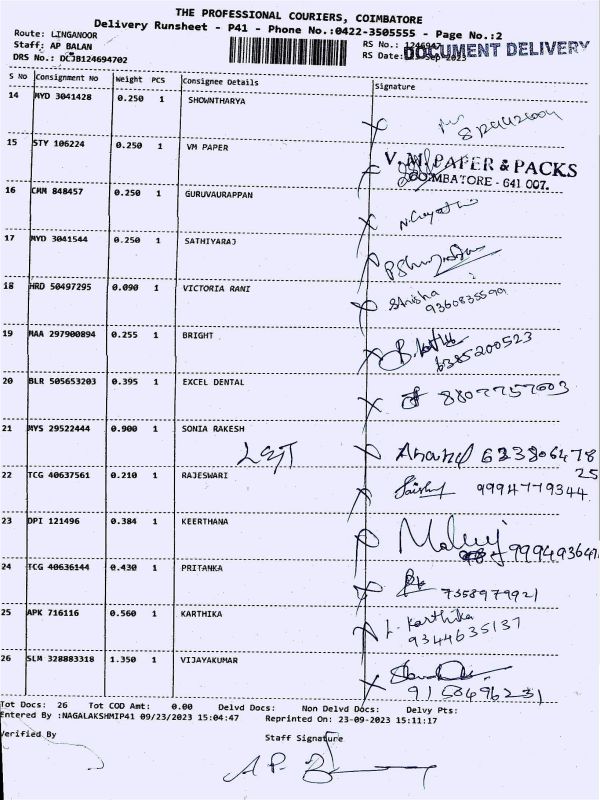 THE PROFESSIONAL COURIERS, COIMBATORE
Delivery Runsheet - P41 - Phone No.:0422-3505555 - Page No.:2
Route: LINGANOOR
Staff: AP BALAN
DRS No.: DCJB124694702
RS No.:
RS Date:
DOCUMENT DELIVERY
S No Consignment No Weight PCS Consignee Details Signature
14 MYD 3041428 0.250 1 SHOWNTHARYA
15 STY 106224 0.250 1 VM PAPER
V. M. PAPER & PACKS
COIMBATORE - 641 007.
16 CMM 848457 0.250 1 GURUVAURAPPAN
17 MYD 3041544 0.250 1 SATHIYARAJ
18 HRD 50497295 0.090 1 VICTORIA RANI
9360835599
19 MAA 297900894 0.255 1 BRIGHT
6385200523
20 BLR 505653203 0.395 1 EXCEL DENTAL
8807757003
21 MYS 29522444 0.900 1 SONIA RAKESH
Anand 633806478
25
22 TCG 40637561 0.210 1 RAJESWARI
9994779344
23 DPI 121496 0.384 1 KEERTHANA
24 TCG 40636144 0.430 1 PRITANKA
7358979921
25 APK 716116 0.560 1 KARTHIKA
L. Karthika
9344635137
26 SLM 328883318 1.350 1 VIJAYAKUMAR
9158496231
Tot Docs: 26 Tot COD Amt: 0.00 Delvd Docs: Non Delvd Docs: Delvy Pts:
Entered By :NAGALAKSHMIP41 09/23/2023 15:04:47 Reprinted On: 23-09-2023 15:11:17
Verified By Staff Signature